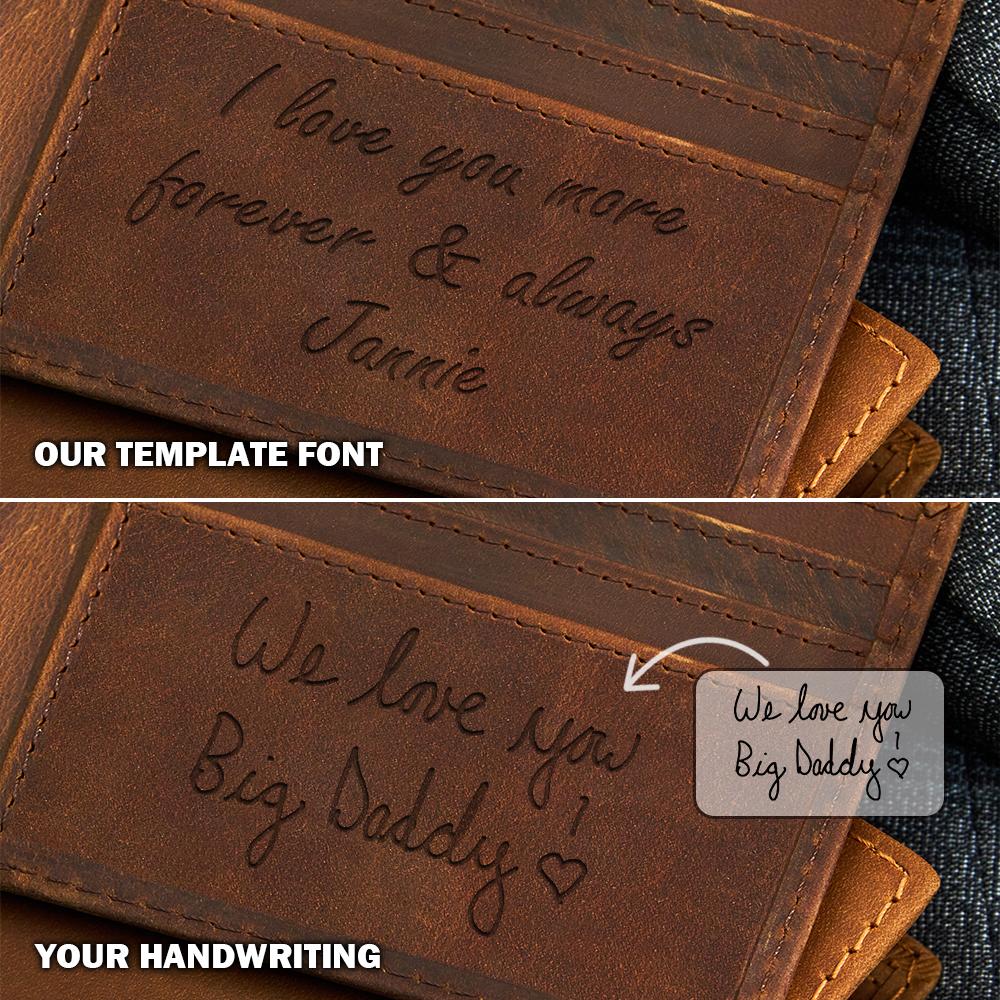 I love you more
forever & always
Jannie
OUR TEMPLATE FONT
We love you
Big Daddy ! ♡
We love you
Big Daddy ! ♡
YOUR HANDWRITING